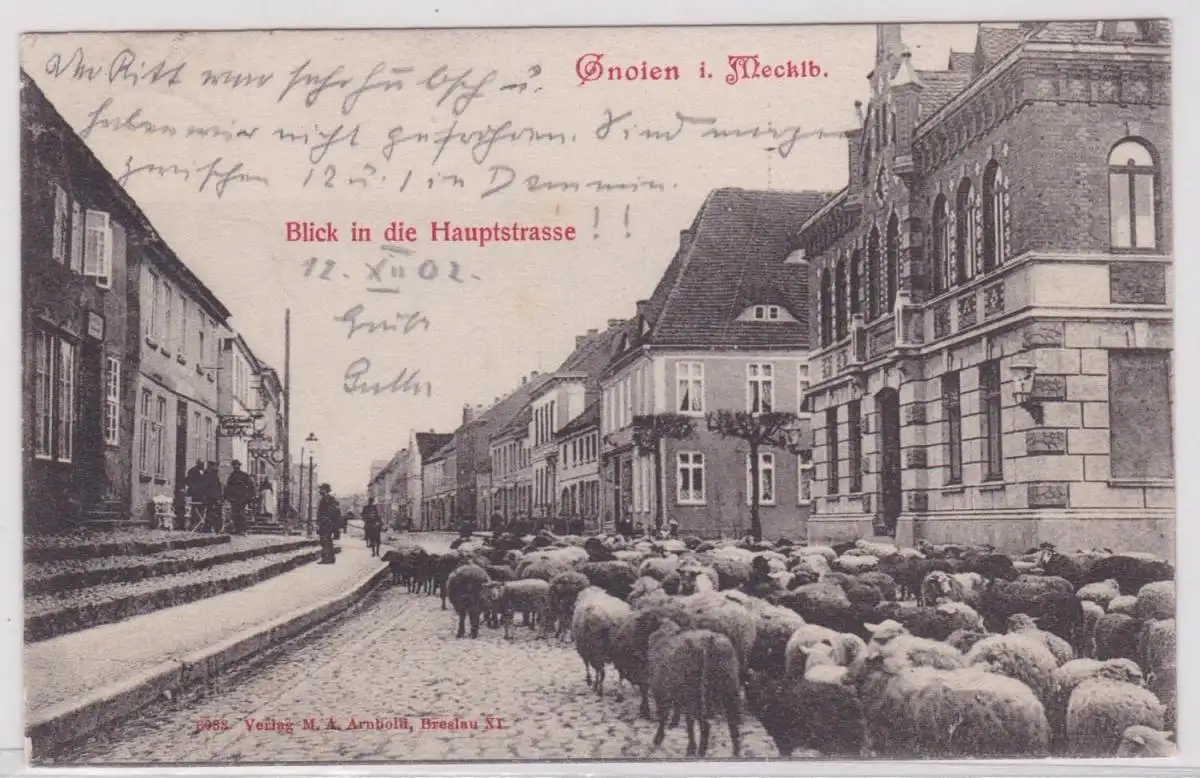 Gnoien i. Mecklb.
Der Ritt war sehr hübsch u.
haben wir nicht gefroren. Sind morgen
zwischen 12 u. 1 in Demmin.
Blick in die Hauptstrasse !!
12. XII 02.
Gruß
6988 Verlag M. A. Arnhold, Breslau XI